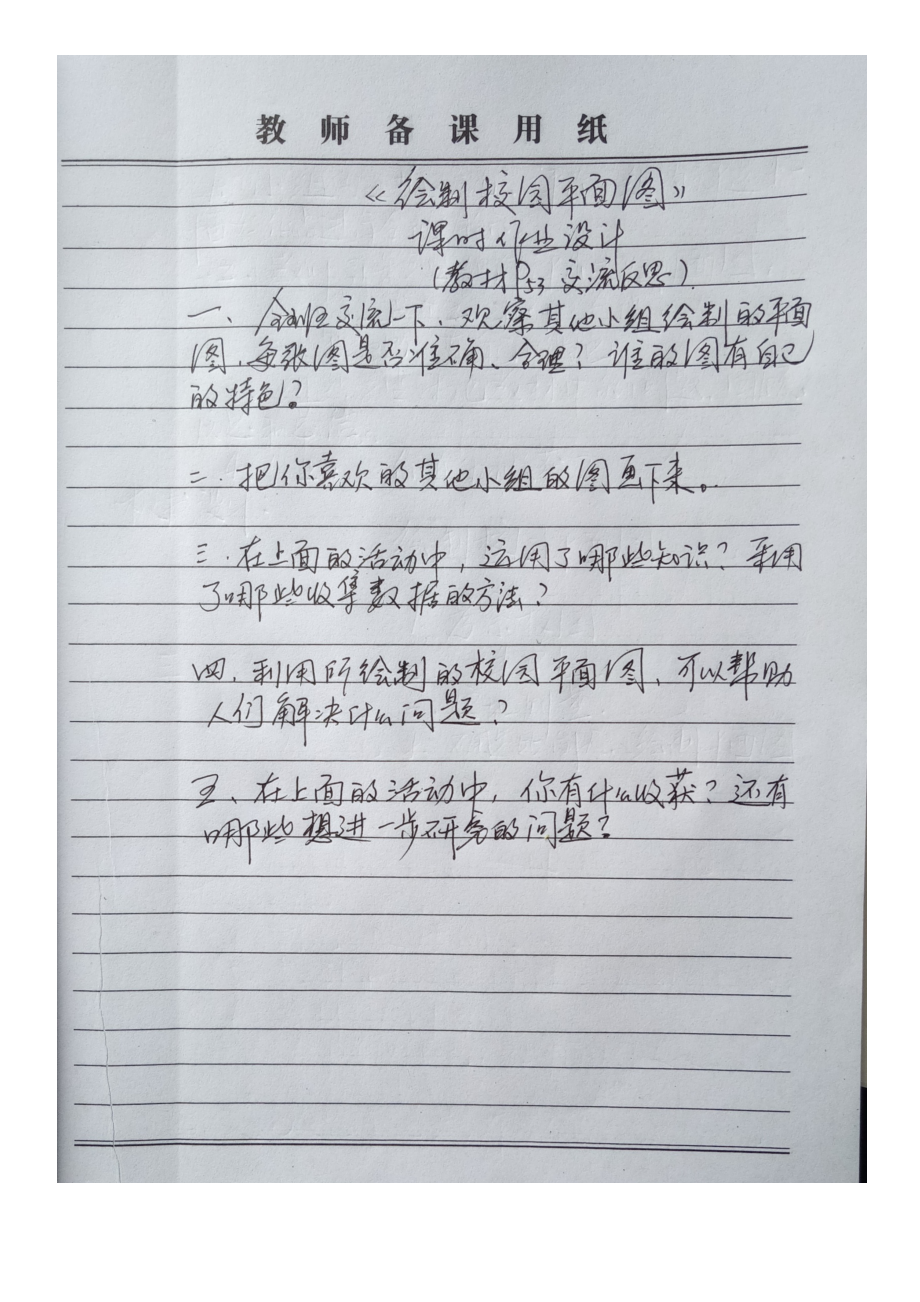 教师备课用纸
《绘制校园平面图》
课时作业设计
(教材P53 交流反思).
一、全班交流一下、观察其他小组绘制的平面
图、每张图是否准确、合理？谁的图有自己
的特色？
二.把你喜欢的其他小组的图画下来。
三.在上面的活动中，运用了哪些知识？采用
了哪些收集数据的方法？
四、利用所绘制的校园平面图、可以帮助
人们解决什么问题？
五、在上面的活动中，你有什么收获？还有
哪些想进一步研究的问题？